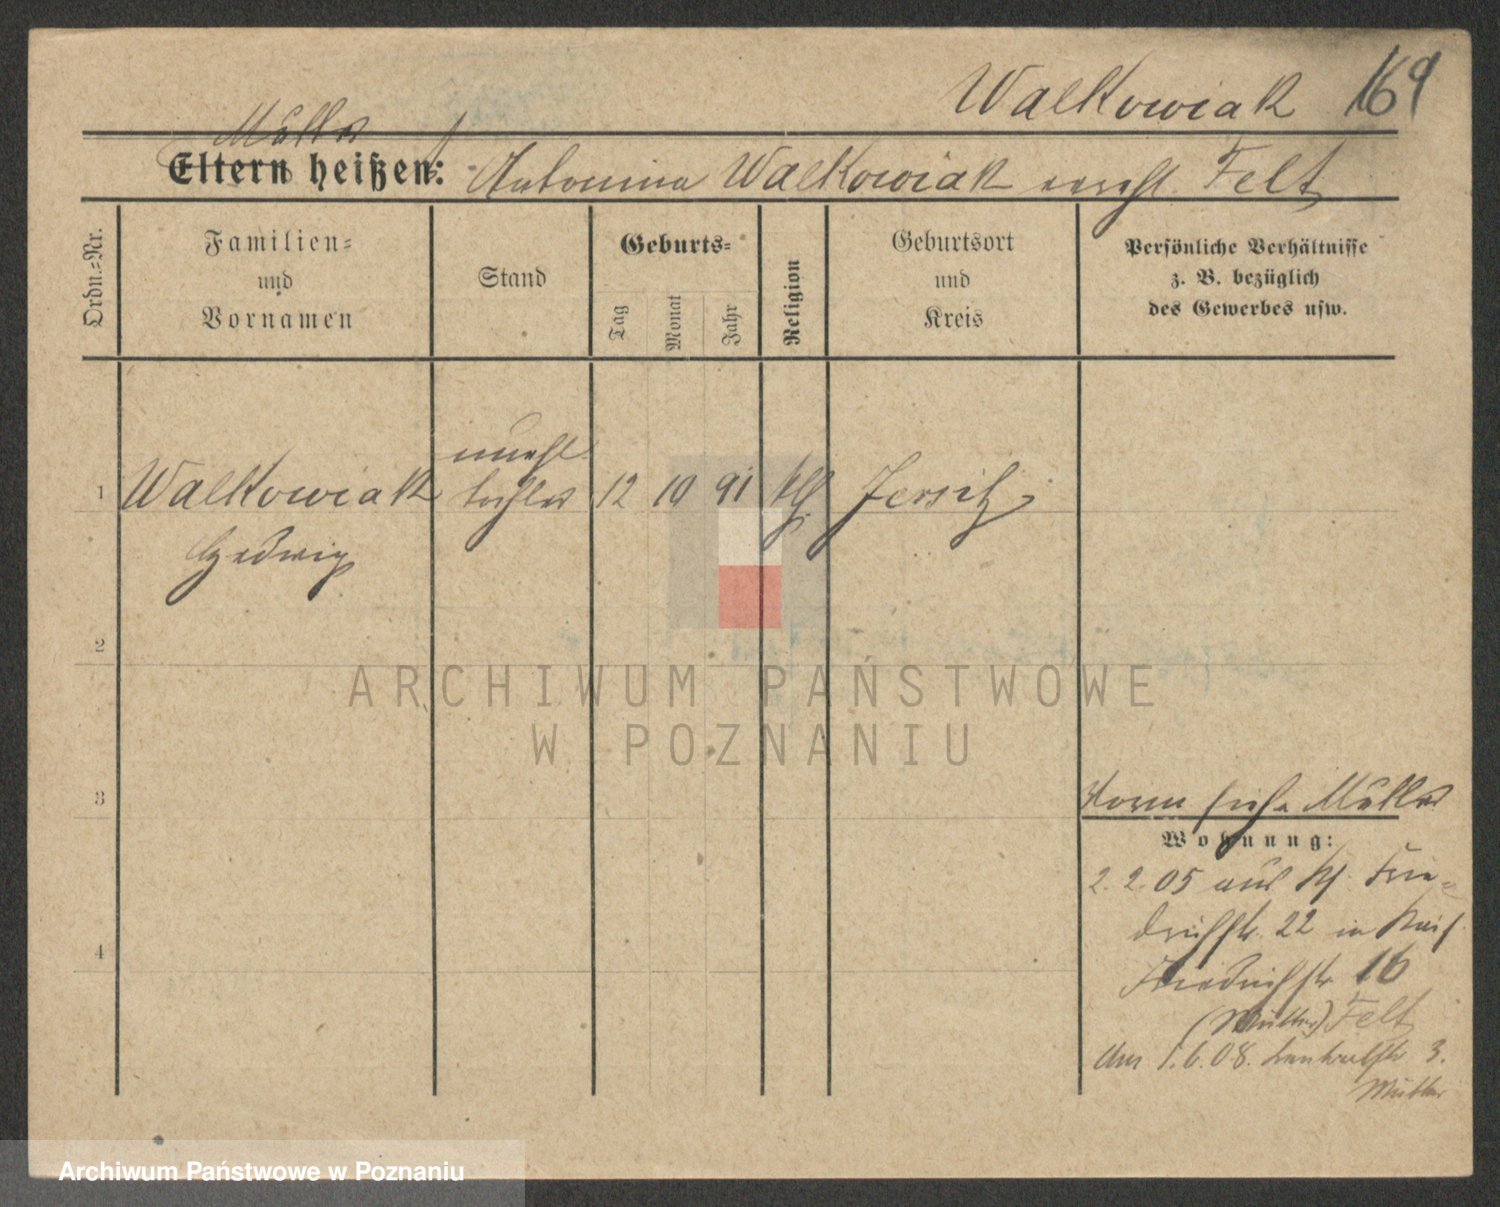 Walkowiak 169
Mutter
Eltern heißen: Antonina Walkowiak verehl. Felt
Ordn.-Nr.
Familien-
und
Vornamen
Stand
Geburts-
Tag
Monat
Jahr
Religion
Geburtsort
und
Kreis
Persönliche Verhältnisse
z. B. bezüglich
des Gewerbes usw.
unehl.
1 Walkowiak Tochter 12 10 91 kth. Jersitz
Hedwig
2
3
4
Vorm siehe Mutter
Wohnung:
2. 2. 05 aus Kf. Frie-
drichstr. 22 in Kais.
Friedrichstr. 16
(Mutter) Felt
Am 1. 6. 08. 3.
Mutter
ARCHIWUM PAŃSTWOWE
W POZNANIU
Archiwum Państwowe w Poznaniu